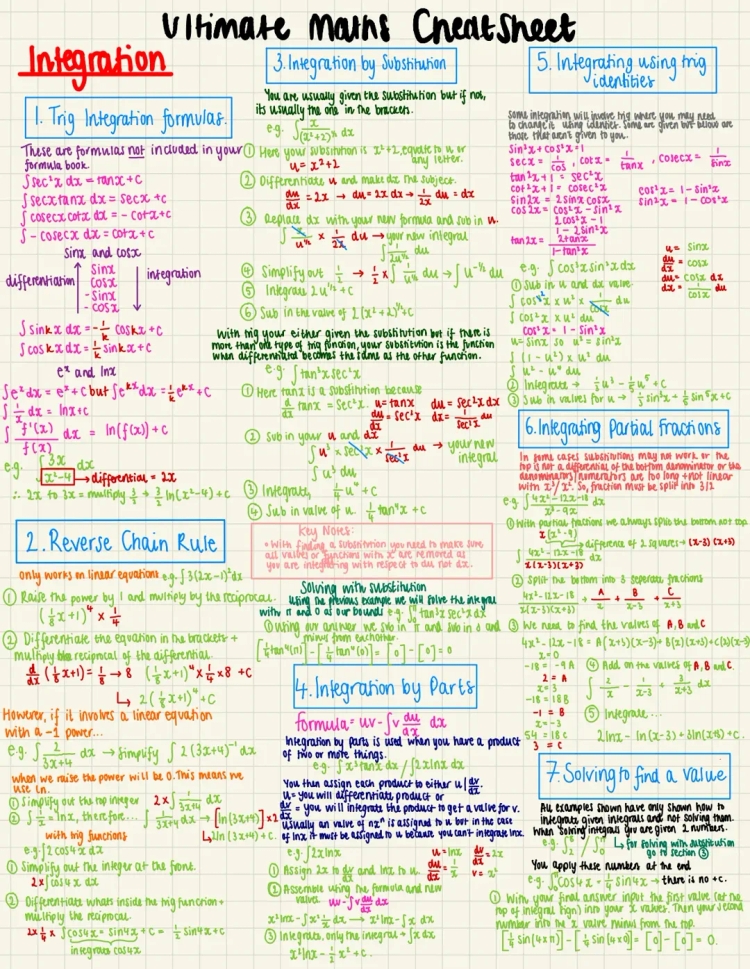 Ultimate Maths Cheatsheet
Integration
1. Trig Integration formulas.
These are formulas not included in your
formula book.
∫sec²x dx = tanx+C
∫secxtanx dx = secx +C
∫cosecx cotx dx = -cotx+C
∫-cosecx dx = cotx+C
sinx and cosx
differentiation
sinx
cosx
-sinx
-cosx
integration
∫sinkx dx = -1/k coskx +C
∫coskx dx = 1/k sinkx +C
eˣ and lnx
∫eˣdx = eˣ+C but ∫eᵏˣdx = 1/k eᵏˣ+C
∫1/x dx = lnx+C
∫f'(x)/f(x) dx = ln(f(x))+C
e.g. ∫3x/(x²-4) dx
→differential = 2x
∴ 2x to 3x = multiply 3/2 → 3/2 ln(x²-4)+C
2. Reverse Chain Rule
only works on linear equations e.g. ∫3(2x-1)²dx
① Raise the power by 1 and multiply by the reciprocal.
(1/8x+1)⁴ × 1/4
② Differentiate the equation in the brackets +
multiply the reciprocal of the differential.
d/dx (1/8x+1) = 1/8 → 8 (1/8x+1)⁴ × 1/4 × 8 +C
↳ 2(1/8x+1)⁴+C
However, if it involves a linear equation
with a -1 power...
e.g. ∫2/(3x+4) dx → simplify ∫2(3x+4)⁻¹dx
when we raise the power will be 0. This means we
use ln.
① Simplify out the top integer 2×∫1/(3x+4) dx
② ∫1/x = lnx, therefore... ∫1/(3x+4) dx → [ln(3x+4)]×2
↳2ln(3x+4)+C.
with trig functions
e.g. ∫2cos4x dx
① Simplify out the integer at the front.
2×∫cos4x dx
② Differentiate whats inside the trig function +
multiply the reciprocal
2×1/4 × ∫cos4x = sin4x +C = 1/2 sin4x+C
integrates cos4x
3. Integration by Substitution
You are usually given the substitution but if not,
its usually the one in the brackets.
e.g. ∫x/(x²+2)^½ dx
① Here your substitution is x²+2, equate to u or
any letter.
u = x²+2
② Differentiate u and make dx the subject.
du/dx = 2x → du = 2x dx → 1/2x du = dx
③ Replace dx with your new formula and sub in u.
∫x/u^½ × 1/2x du → your new integral
∫1/2u^½ du
④ Simplify out 1/2 → 1/2 × ∫1/u^½ du → ∫u^-½ du
⑤ Integrate 2u^½ +C
⑥ Sub in the value of 2(x²+2)^½+C
With trig your either given the substitution but if there is
more than one type of trig function, your substitution is the function
when differentiated becomes the same as the other function.
e.g. ∫tan³x sec²x dx
① Here tanx is a substitution because
d/dx tanx = sec²x. u=tanx du = sec²x dx
du/dx = sec²x dx = 1/sec²x du
② Sub in your u and dx
∫u³ × sec²x × 1/sec²x du → your new
integral
∫u³ du
③ Integrate, 1/4 u⁴ +C
④ Sub in value of u. 1/4 tan⁴x +C
Key Notes:
• With finding a substitution you need to make sure
all values or functions with x are removed as
you are integrating with respect to du not dx.
Solving with substitution
Using the previous example we will solve the integral
with π and 0 as our bounds e.g. ∫tan³x sec²x dx
① Using our answer we sub in π and sub in 0 and
minus from eachother.
[1/4 tan⁴(π)] - [1/4 tan⁴(0)] = [0] - [0] = 0
4. Integration by Parts
formula = uv - ∫v du/dx dx
Integration by parts is used when you have a product
of two or more things.
e.g. ∫x³tanx dx / ∫2xlnx dx
You then assign each product to either u | dv/dx
u = you will differentiate product or
dv/dx = you will integrate the product to get a value for v.
usually an value of nxⁿ is assigned to u but in the case
of lnx it must be assigned to u because you can't integrate lnx.
e.g. ∫2xlnx u = lnx dv/dx = 2x
① Assign 2x to dv/dx and lnx to u. du/dx = 1/x v = x²
② Assemble using the formula and new
values uv-∫v du/dx dx
x²lnx - ∫x² 1/x dx → x²lnx - ∫x dx
③ Integrate, only the integral → ∫x dx
x²lnx - 1/2 x² +C.
5. Integrating using trig
identities
Some integration will involve trig where you may need
to change it using identies. Some are given but below are
those that aren't given to you.
sin²x + cos²x = 1
secx = 1/cosx, cotx = 1/tanx, cosecx = 1/sinx
tan²x+1 = sec²x
cot²x+1 = cosec²x
sin2x = 2sinx cosx
cos2x = cos²x - sin²x
2cos²x - 1
1 - 2sin²x
tan2x = 2tanx/1-tan²x
cos²x = 1-sin²x
sin²x = 1-cos²x
e.g. ∫cos³x sin²x dx
u = sinx
du/dx = cosx
du = cosx dx
dx = 1/cosx du
① Sub in u and dx value.
∫cos³x × u² × 1/cosx du
∫cos²x × u² du
cos²x = 1-sin²x
u=sinx so u²=sin²x
∫(1-u²) × u² du
∫u² - u⁴ du
② Integrate → 1/3u³ - 1/5u⁵ +C
③ Sub in values for u → 1/3 sin³x + 1/5 sin⁵x +C
6. Integrating Partial Fractions
In some cases substitutions may not work or the
top is not a differential of the bottom denominator or the
denominators/numerators are too long + not linear
with x³/x². So, fraction must be split into 3/2
e.g. ∫4x²-12x-18/x³-9x dx
① With partial fractions we always split the bottom not top.
x(x²-9)
→difference of 2 squares → (x-3)(x+3)
∫4x²-12x-18/x(x-3)(x+3) dx
② Split the bottom into 3 seperate fractions
4x²-12x-18/x(x-3)(x+3) = A/x + B/x-3 + C/x+3
③ We need to find the values of A, B and C
4x²-12x-18 = A(x+3)(x-3)+B(x)(x+3)+C(x)(x-3)
x=0
-18 = -9A
2 = A
x = 3
-18 = 18B
-1 = B
x = -3
54 = 18C
3 = C
④ Add on the values of A, B and C.
∫2/x - 1/x-3 + 3/x+3 dx
⑤ Integrate...
2lnx - ln(x-3) + 3ln(x+3) +C.
7. Solving to find a value
All examples shown have only shown how to
integrate given integrals and not solving them.
When solving integrals you are given 2 numbers.
↳ for solving with substitution
go to section ③
You apply these number at the end
e.g. ∫cos4x = 1/4 sin4x → there is no +c.
① With your final answer input the first value (at the
top of integral sign) into your x values. Then your second
number into the x value minus from the top.
[1/4 sin(4×π)] - [1/4 sin(4×0)] = [0] - [0] = 0.